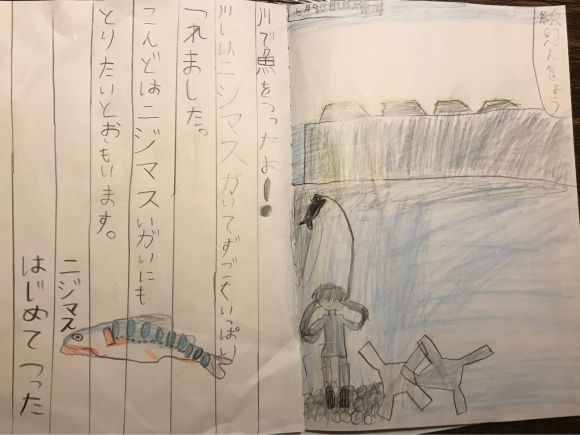 絵のべんきょう
川で魚をつったよー!
川にはニジマスがいてすごくいっぱい
つれました。
こんどはニジマスいがいにも
とりたいとおもいます。
ニジマス
はじめてつった